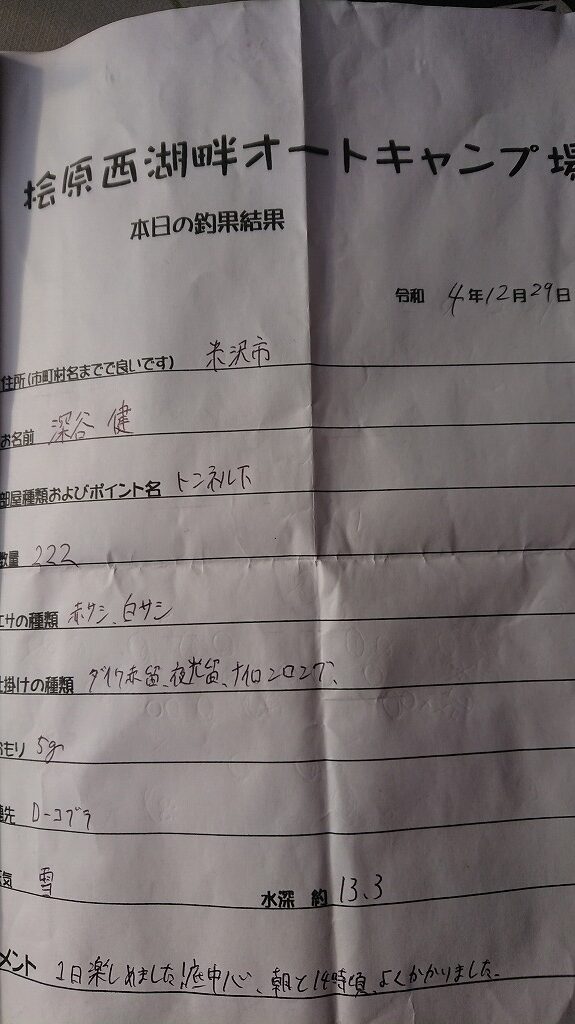 桧原西湖畔オートキャンプ場
本日の釣果結果
令和 4年12月29日
住所(市町村名までで良いです) 米沢市
お名前 深谷 健
部屋種類およびポイント名 トンネル下
数量 222
エサの種類 赤サシ、白サシ
仕掛けの種類 ダイワ赤留、夜光留、ナイロンロング、
おもり 5g
穂先 D-コブラ
天気 雪 水深 約 13.3
メント 1日楽しめました!底中心、朝と14時頃、よくかかりました。